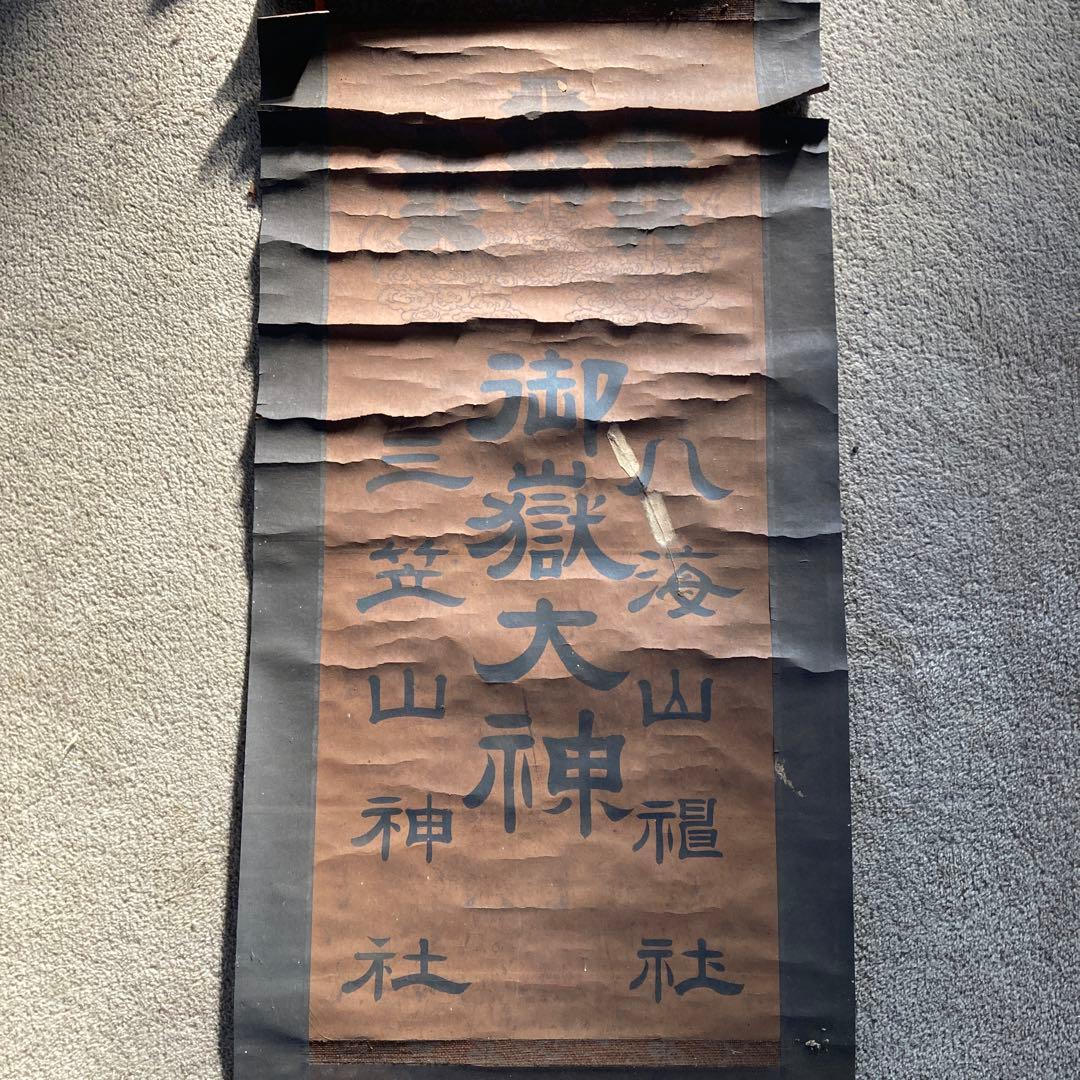 八海山神社
御嶽大神
三笠山神社